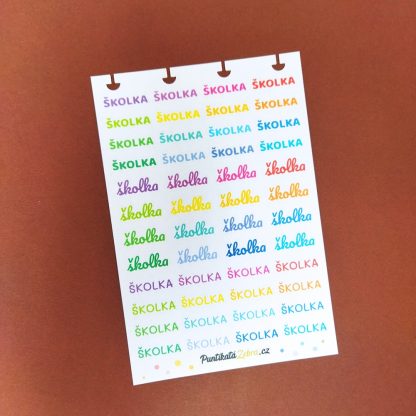 ŠKOLKA ŠKOLKA ŠKOLKA ŠKOLKA
ŠKOLKA ŠKOLKA ŠKOLKA ŠKOLKA
ŠKOLKA ŠKOLKA ŠKOLKA ŠKOLKA
ŠKOLKA ŠKOLKA ŠKOLKA ŠKOLKA
školka školka školka školka
školka školka školka školka
školka školka školka školka
školka školka školka školka
ŠKOLKA ŠKOLKA ŠKOLKA ŠKOLKA
ŠKOLKA ŠKOLKA ŠKOLKA ŠKOLKA
ŠKOLKA ŠKOLKA ŠKOLKA ŠKOLKA
ŠKOLKA ŠKOLKA ŠKOLKA ŠKOLKA
PuntíkatáZebra.cz